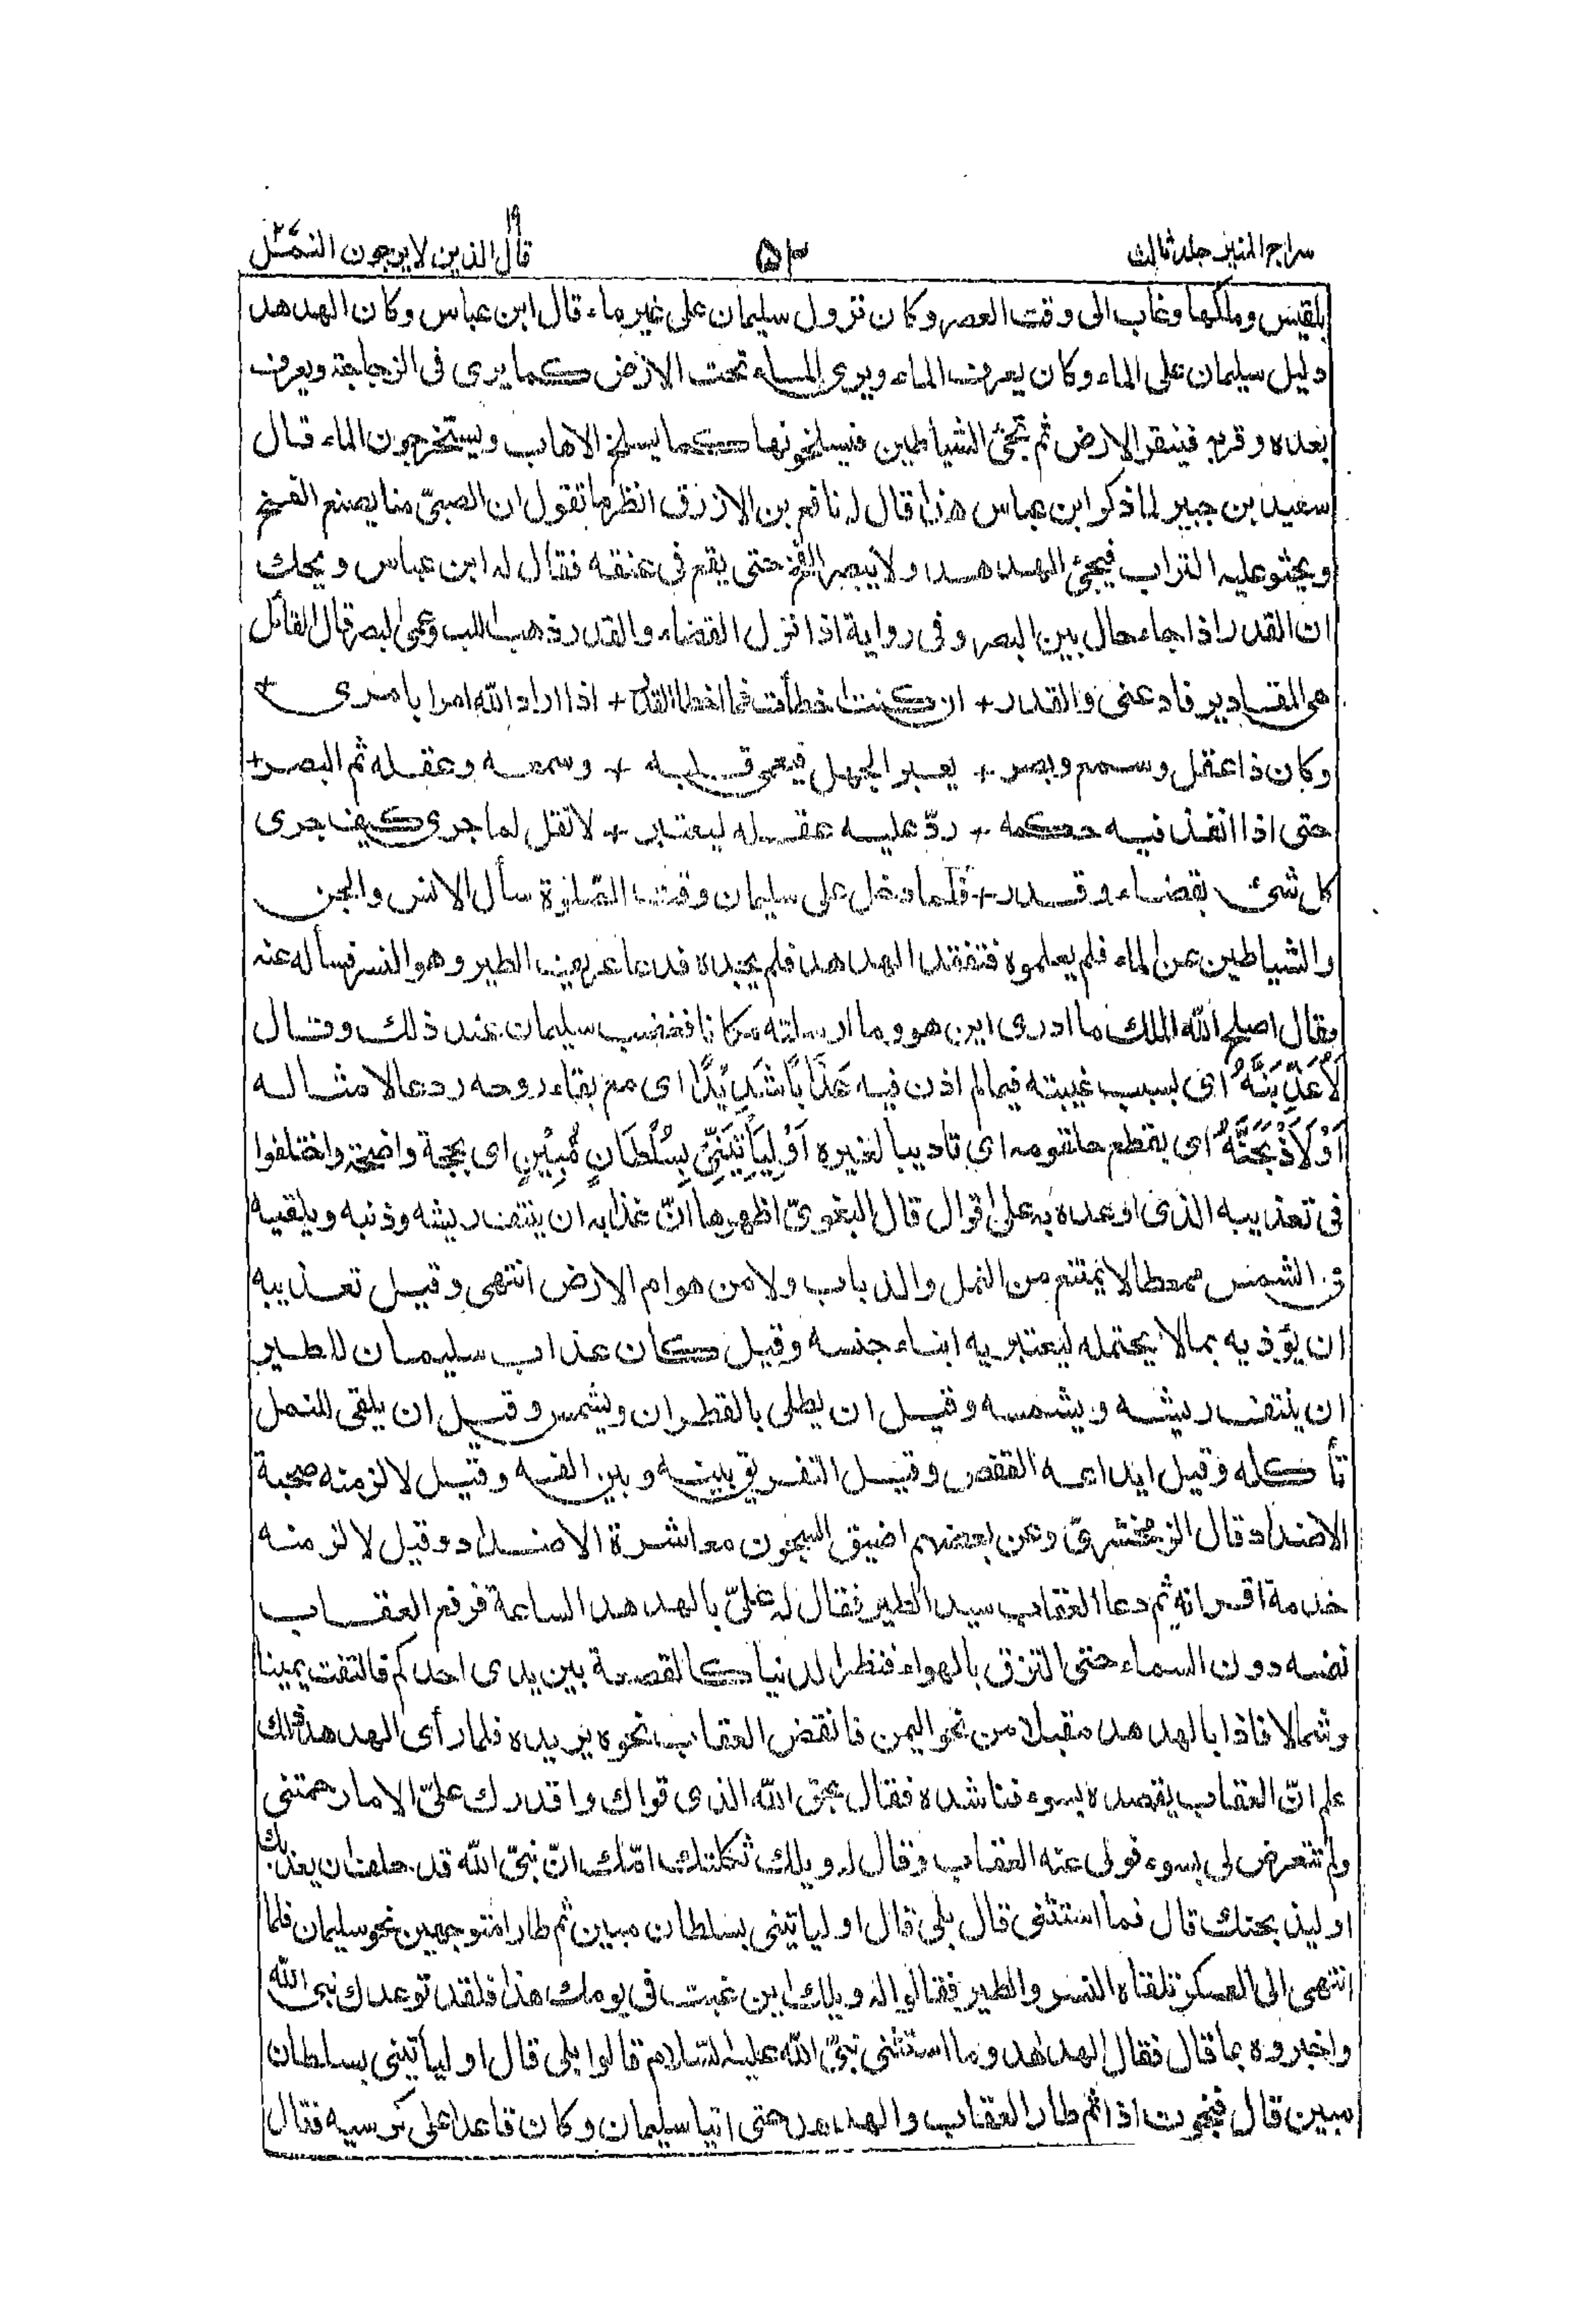 سراج المنير جلد ثالث
۵۳
قال الذين لا يرجون ۱۹ النمل ۲۷
بلقيس وملكها وغاب الى وقت العصر وكان نزول سليمان على غير ماء قال ابن عباس وكان الهدهد
دليل سليمان على الماء وكان يعرف الماء ويرى الماء تحت الارض كما يرى فى الزجاجة ويعرف
بعده وقربه فينقر الارض ثم تجئ الشياطين فيسلخونها كما يسلخ الاهاب ويستخرجون الماء قال
سعيد بن جبير لما ذكر ابن عباس هذا قال له نافع بن الازرق انظر ما تقول ان الصبىّ منا يصنع الفخ
ويحثو عليه التراب فيجئ الهدهد ولا يبصر الفخ حتى يقع فى عنقه فقال له ابن عباس ويحك
ان القدر اذا جاء حال بين البصر وفى رواية اذا نزل القضاء والقدر ذهب اللب وعمى البصر قال القائل
هى المقادير فادعنى والقدر + ان كنت اخطأت فما اخطا القدر + اذا اراد الله امرا بامرى +
وكان ذا عقل وسمع وبصر + يعبر الجهل فيعمى قلبه + وسمعه وعقله ثم البصر +
حتى اذا انفذ فيه حكمه + ردّ عليه عقله ليعتبر + لا تقل لما جرى كيف جرى
كل شئ بقضاء وقدر + فلما دخل على سليمان وقت الصّلوة سأل الانس والجن
والشياطين عن الماء فلم يعلموه فتفقد الهدهد فلم يجده فدعا عريف الطير وهو النسر فسأله عنه
فقال اصلح الله الملك ما ادرى اين هو وما ارسلته مكانا فغضب سليمان عند ذلك وقال
لَاُعَذِّبَنَّهٗ اى بسبب غيبته فيما لم اذن فيه عَذَابًا شَدِيْدًا اى مع بقاء روحه ردعا لامثاله
اَوْ لَاَذْبَحَنَّهٗ اى بقطع حلقومه اى تاديبا لغيره اَوْ لَيَأْتِيَنِّيْ بِسُلْطَانٍ مُّبِيْنٍ اى بحجة واضحة واختلفوا
فى تعذيبه الذى اوعده به على اقوال قال البغوىّ اظهرها انّ عذابه ان ينتف ريشه وذنبه ويلقيه
فى الشمس ممعطا لا يمتنع من النمل والذباب ولا من هوام الارض انتهى وقيل تعذيبه
ان يؤذيه بما لا يحتمله ليعتبر به ابناء جنسه وقيل كان عذاب سليمان للطير
ان ينتف ريشه ويشمسه وقيل ان يطلى بالقطران ويشمس وقيل ان يلقى للنمل
تأكله وقيل ايداعه القفص وقيل التفريق بينه وبين الفه وقيل لالزمنه صحبة
الاضداد قال الزمخشرىّ وعن بعضهم اضيق السجون معاشرة الاضداد وقيل لالزمنه
خدمة اقرانه ثم دعا العقاب سيد الطير فقال له علىّ بالهدهد الساعة فرفع العقاب
نفسه دون السماء حتى التزق بالهواء فنظر الدنيا كالقصعة بين يدى احدكم فالتفت يمينا
وشمالا فاذا بالهدهد مقبلا من نحو اليمن فانقض العقاب نحوه يريده فلما رأى الهدهد ذلك
علم انّ العقاب يقصده بسوء فناشده فقال بحق الله الذى قواك واقدرك علىّ الا ما رحمتنى
ولم تتعرض لى بسوء فولى عنه العقاب وقال له ويلك ثكلتك امّك انّ نبىّ الله قد حلف ان يعذبك
او ليذبحنك قال فما استثنى قال بلى قال او لياتينى بسلطان مبين ثم طارا متوجهين نحو سليمان فلما
انتهى الى العسكر تلقاه النسر والطير فقالوا له ويلك اين غبت فى يومك هذا فلقد توعدك نبى الله
واخبروه بما قال فقال الهدهد وما استثنى نبىّ الله عليه السّلام قالوا بلى قال او ليأتينى بسلطان
مبين قال فنجوت اذا ثم طار العقاب والهدهد حتى اتيا سليمان وكان قاعدا على كرسيه فقال